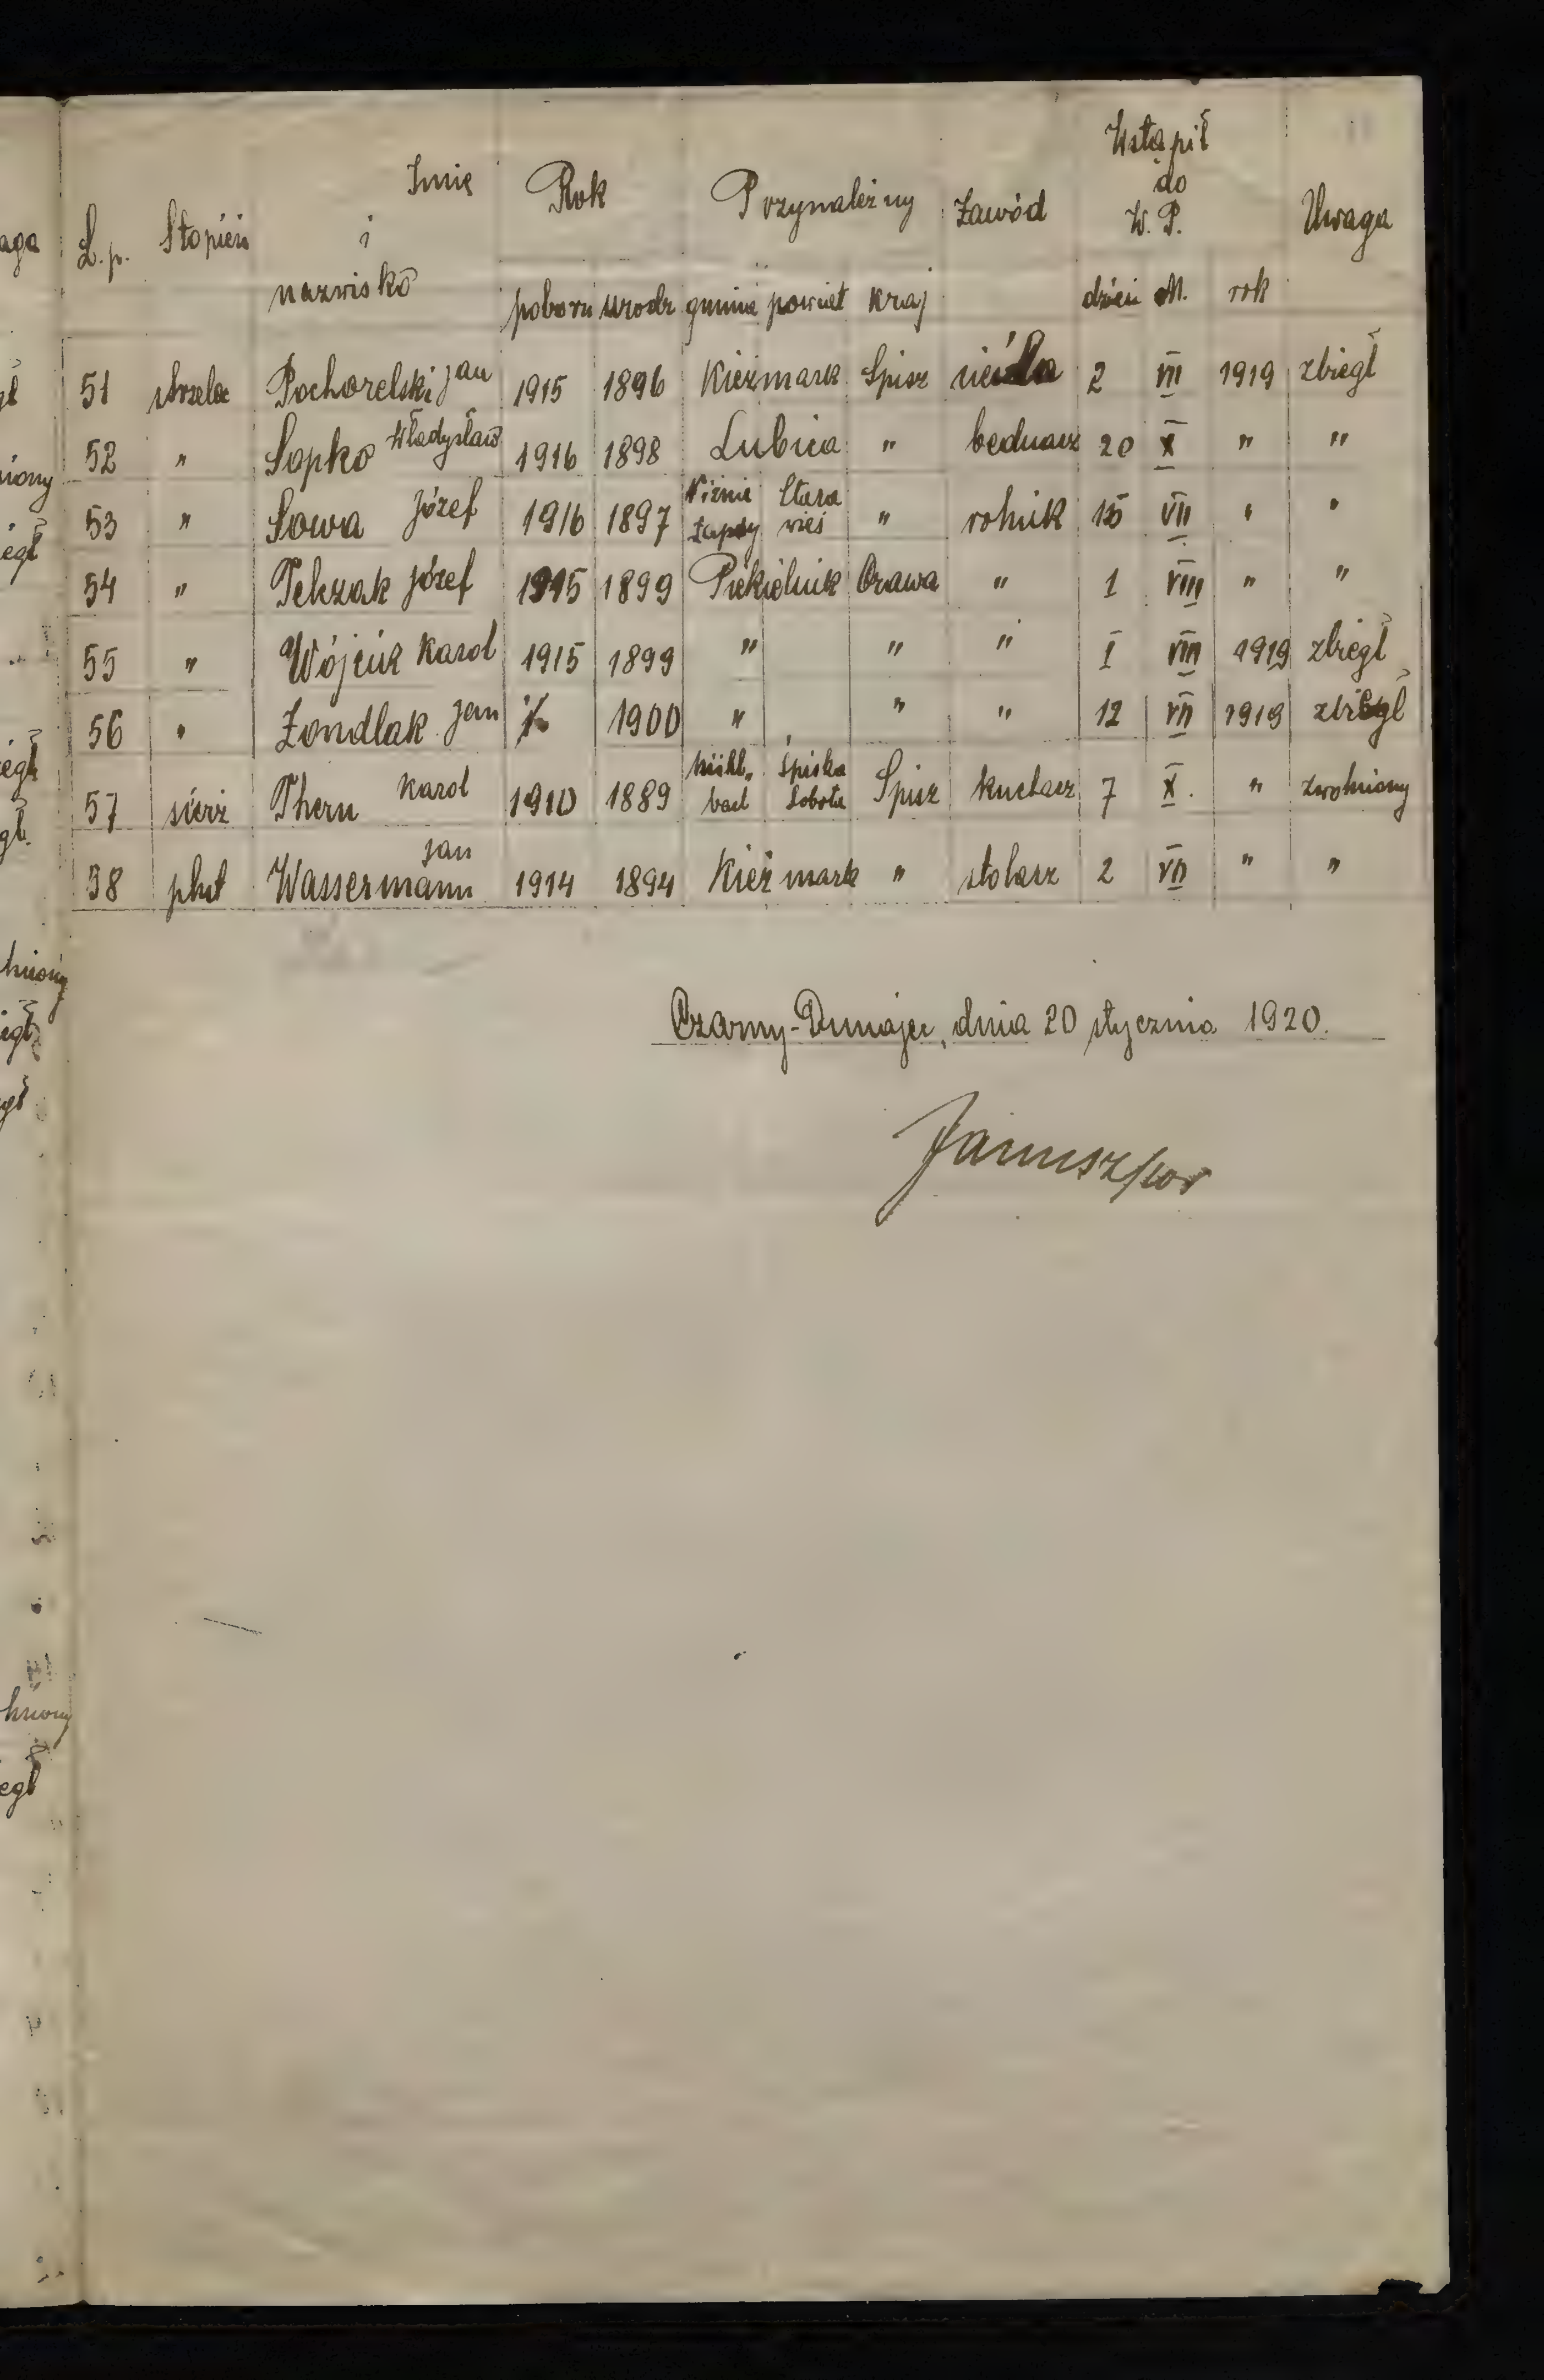 L.p. Stopień Imię i nazwisko Rok Przynależny Zawód Wstąpił do W. P. Uwaga
poboru urodz gmina powiat kraj dzień M. rok
51 strzelec Pochorelski Jan 1915 1896 Kieżmark Spisz 2 VII 1919 zbiegł
52 " Sopko Władysław 1916 1898 Lubica " bednarz 20 X " "
53 " Sowa Józef 1916 1897 Niżnie Łapsy Stara wieś " rolnik 15 VII " "
54 " Tekzak Józef 1915 1899 Piekielnik Orawa " 1 VIII " "
55 " Wójciik Karol 1915 1899 " " " 1 VIII 1919 zbiegł
56 " Żondlak Jan % 1900 " " " 12 VII 1919 zbiegł
57 sierż Thern Karol 1910 1889 Mühlbach Spiska Sobota Spisz kucharz 7 X. " zwolniony
58 plut Wassermann Jan 1914 1894 Kieżmark " stolarz 2 VII " "
Czarny-Dunajec, dnia 20 stycznia 1920.
Janusz por